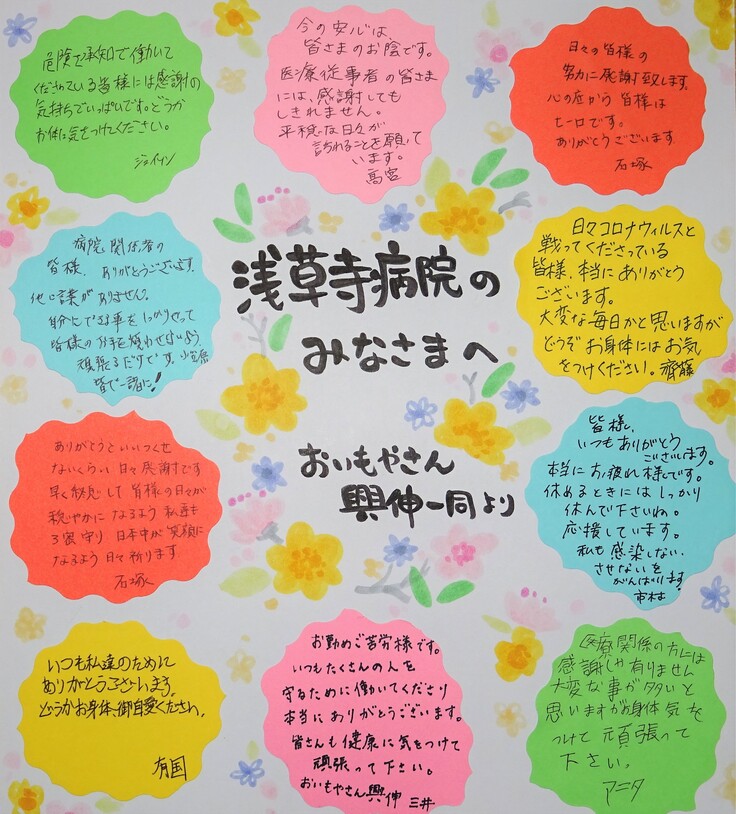 危険を承知で働いて
くださっている皆様には感謝の
気持ちでいっぱいです。どうか
お体に気をつけてください。
ジェイソン
今の安心は
皆さまのお陰です。
医療従事者の皆さま
には、感謝しても
しきれません。
平穏な日々が
訪れることを願って
います。
高宮
日々の皆様の
努力に感謝致します。
心の底から皆様は
ヒーローです。
ありがとうございます
石塚
病院関係者の
皆様、ありがとうございます。
他に言葉がありません。
自分にできる事をしっかりやって
皆様の
頑張るだけです。
皆で一緒に!
浅草寺病院の
みなさまへ
日々コロナウィルスと
戦ってくださっている
皆様、本当にありがとう
ございます。
大変な毎日かと思いますが
どうぞお身体にはお気
をつけください。齊藤
ありがとうといいつくせ
ないくらい日々感謝です
早く終息して皆様の日々が
穏やかになるよう私達も
3密守り日本中が笑顔に
なるよう日々祈ります
石塚
おいもやさん
興伸一同より
皆様、
いつもありがとう
ございます。
本当にお疲れ様です。
休めるときにはしっかり
休んで下さいね。
応援しています。
私も感染しない
させないを
がんばります
市村
いつも私達のために
ありがとうございます。
どうかお身体、御自愛ください。
有国
お勤めご苦労様です。
いつもたくさんの人を
守るために働いてくださり
本当にありがとうございます。
皆さんも健康に気をつけて
頑張って下さい。
おいもやさん興伸 三井
医療関係の方には
感謝しか有りません
大変な事が多いと
思いますがお身体気を
つけて頑張って
下さい。
アニタ